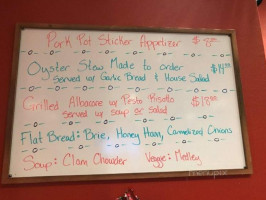 Pork Pot Sticker Appetizer $8.50
Oyster Stew Made to order $14.95
Served w/ Garlic Bread & House Salad
Grilled Albacore w/ Pesto Risotto $18.50
Served w/ soup or salad
Flat Bread: Brie, Honey Ham, Carmelized Onions
Soup: Clam Chowder Veggie: Medley